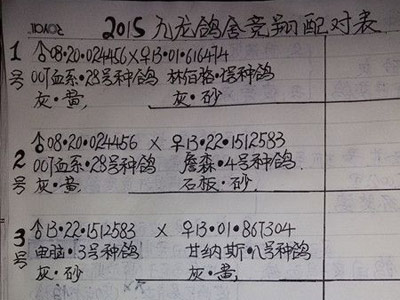 2015 九龙鸽舍竞翔配对表
1号 ♂08·20·024456 × ♀13·01·616474
007血系·28号种鸽 林伯格·1号种鸽
灰·黄 灰·砂
2号 ♂08·20·024456 × ♀13·22·1512583
007血系·28号种鸽 詹森·4号种鸽
灰·黄 石板·砂
3号 ♂13·22·1512583 × ♀13·01·867304
电脑·3号种鸽 甘纳斯·八号种鸽
灰·砂 灰·黄